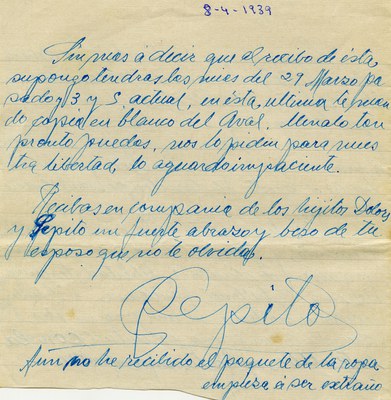 8-4-1939
Sin mas á decir que al recibo de ésta,
supongo tendras las mias del 29 Marzo pa
sado y 3 y 5, actual, en ésta ultima te man
do copia en blanco del Aval, llenalo tan
pronto puedas, nos lo piden para nues
tra libertad, lo aguardo impaciente.
Recibas en compañia de los hijitos Dolor
y Pepito un fuerte abrazo y beso de tu
esposo que no te olvida,
Pepito
Aún no he recibido el paquete de la ropa
empieza á ser extraño